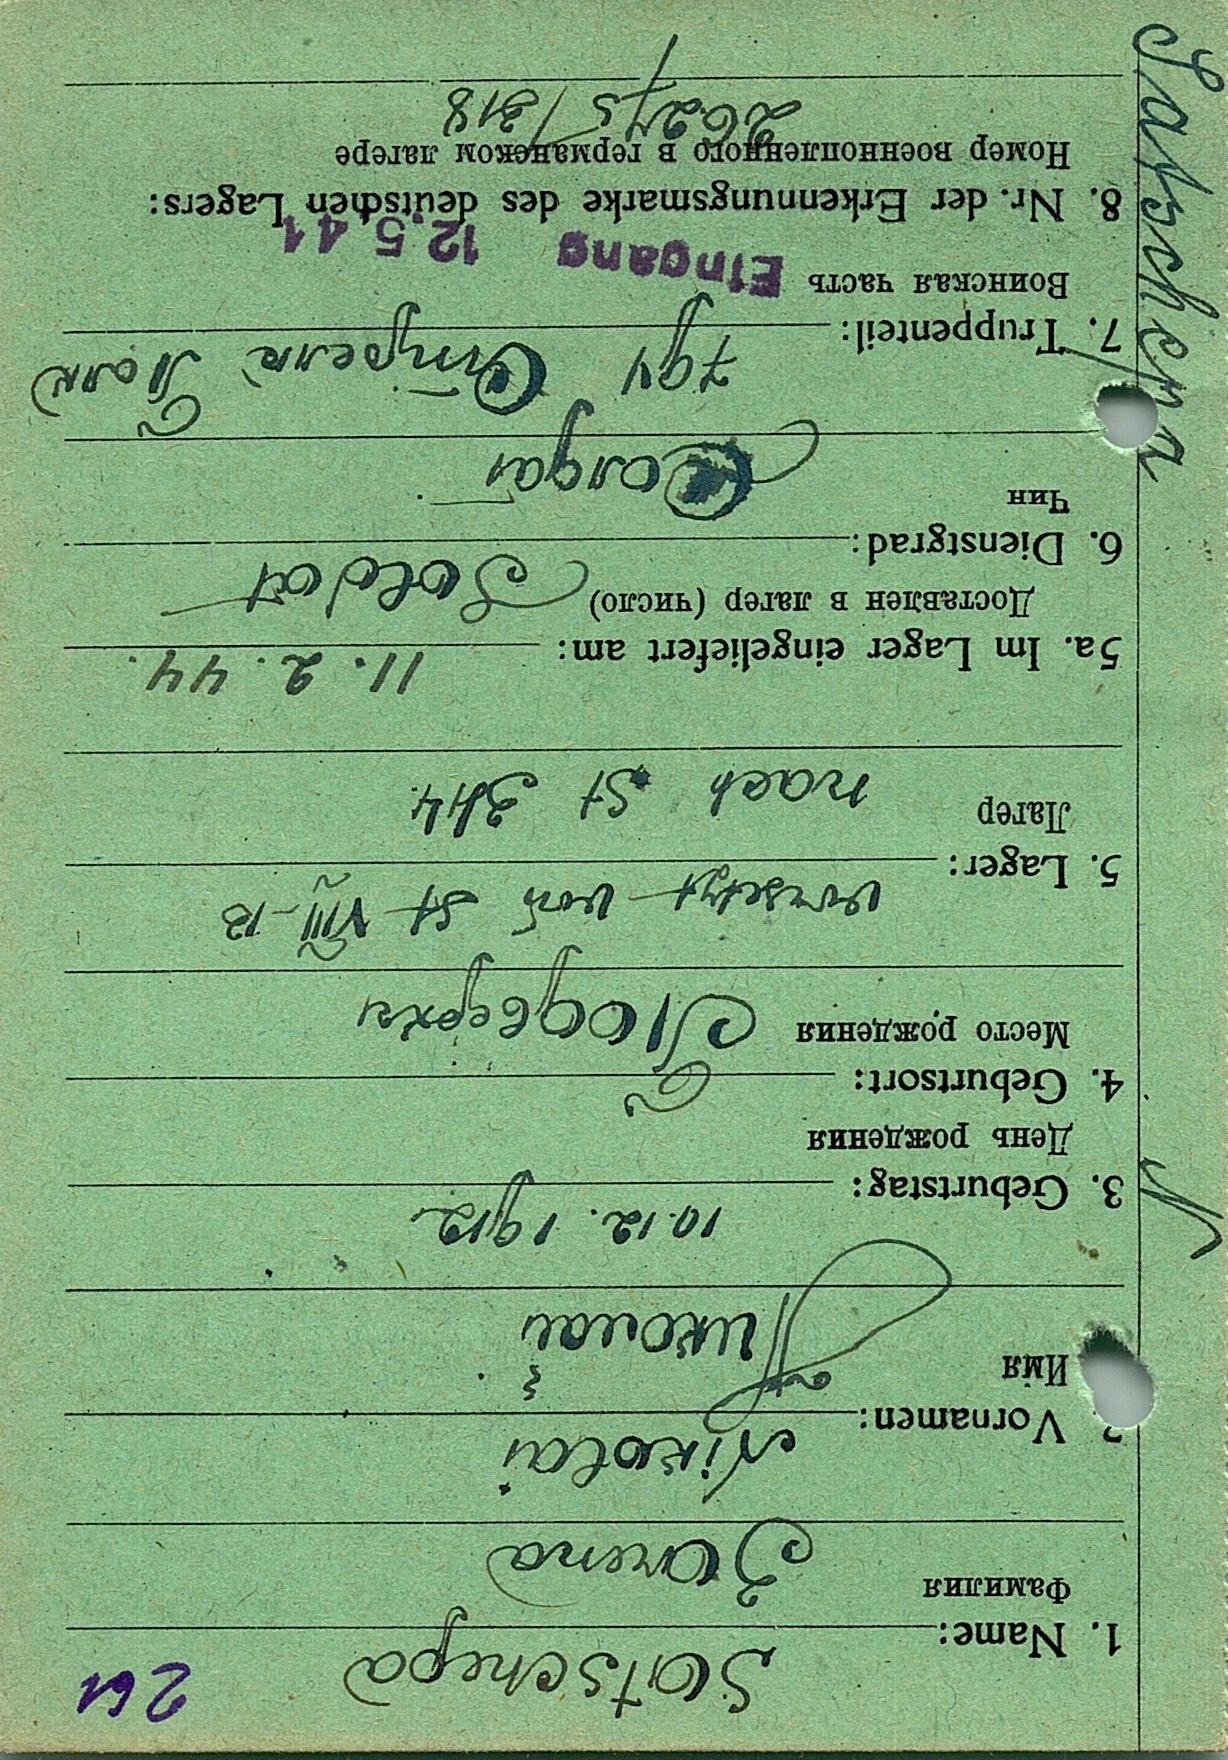 261
Satschepa
1. Name:
Фамилия
Зачепа
Nikolai
2. Vornamen:
Имя
Николай
10.12.1912
3. Geburtstag:
День рождения
4. Geburtsort:
Место рождения
Подверхи
versetzt von St VIII-B
5. Lager:
Лагерь
nach St 344.
5a. Im Lager eingeliefert am: 11.2.44.
Доставлен в лагерь (число)
Soldat
6. Dienstgrad:
Чин
Солдат
794 Стрелк Полк
7. Truppenteil:
Воинская часть
Eingang 12.5.44
8. Nr. der Erkennungsmarke des deutschen Lagers:
Номер военнопленного в германском лагере
26275/318
Satschepa
N